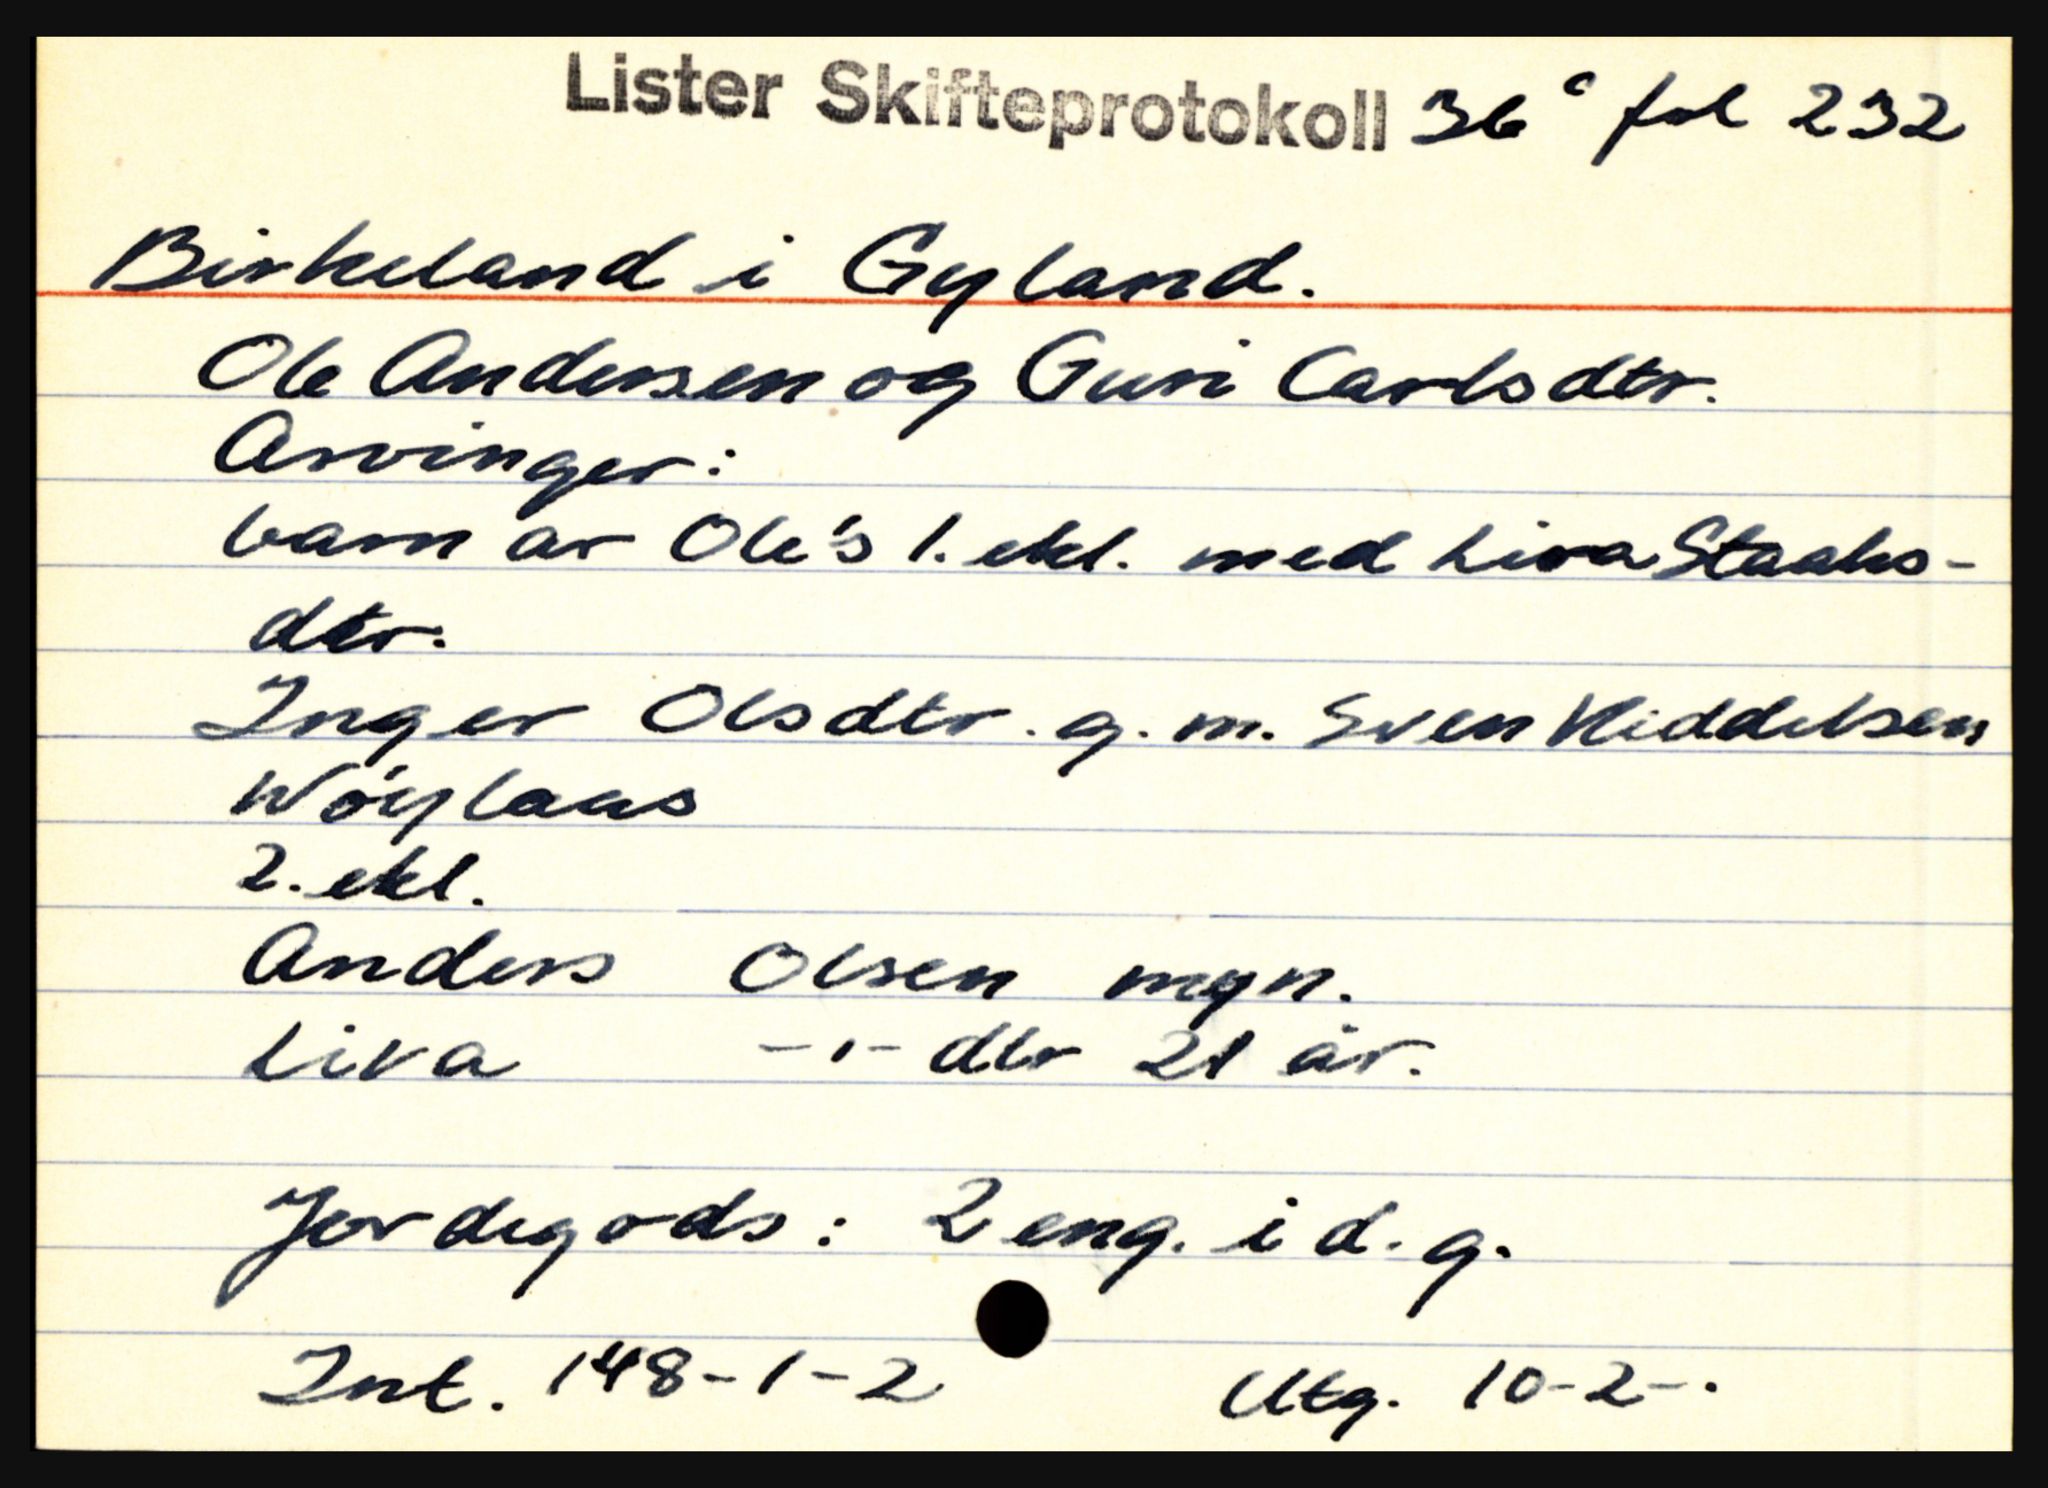 Lister Skifteprotokoll 36 c fol 232
Birkeland i Gyland.
Ole Andersen og Guri Carlsdtr.
Arvinger:
barn av Ole's 1. ekt. med Liva Staals-
dtr.
Inger Olsdtr. g. m. Sven Middelsen
Nöylaas
2. ekt.
Anders Olsen mgn.
Liva -"- dtr 21 år.
Jordegods: 2 eng. i d. g.
Int. 148-1-2 Utg. 10-2-.